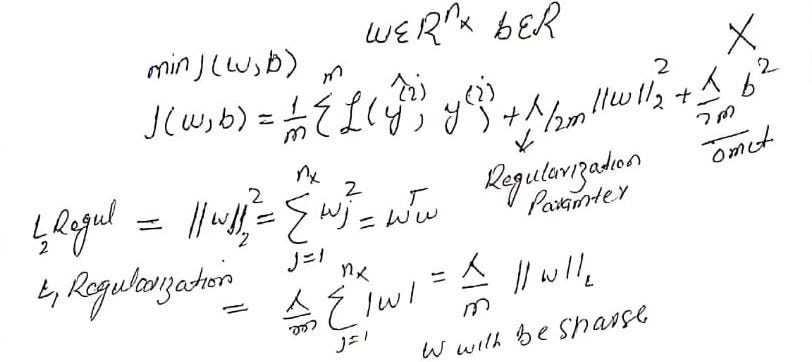 w∈R^nx b∈R
min J(w,b) X
J(w,b) = 1/m Σ^m L(ŷ^(i), y^(i)) + λ/2m ||w||₂² + λ/2m b²
↓ omit
Regularization
Paramter
L₂ Regul = ||w||₂² = Σ_{j=1}^{nx} wj² = wᵀw
L₁ Regularization = λ/m Σ_{j=1}^{nx} |w| = λ/m ||w||₁
w will be sparse